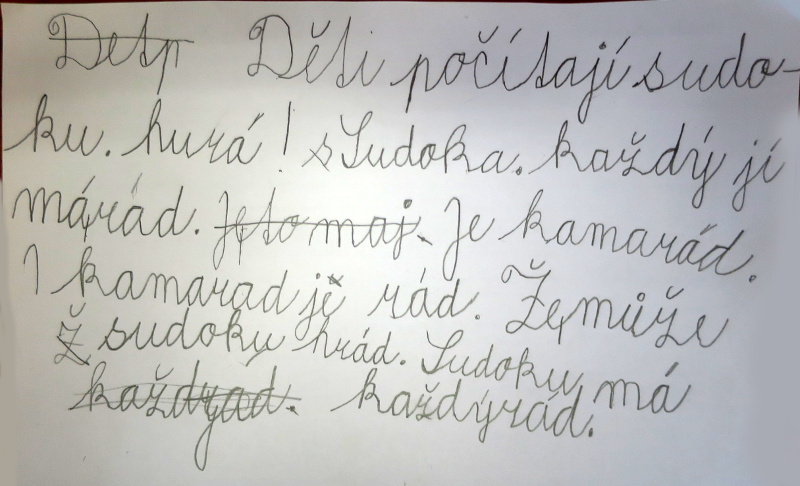 Detp Děti počítají sudo-
ku. hurá! s Sudoka. každý jí
márád. Jeto maj. Je kamarád.
I kamarad je rád. Žemůže
Ž sudoku hrád. Sudoku má
každyád. každýrád.